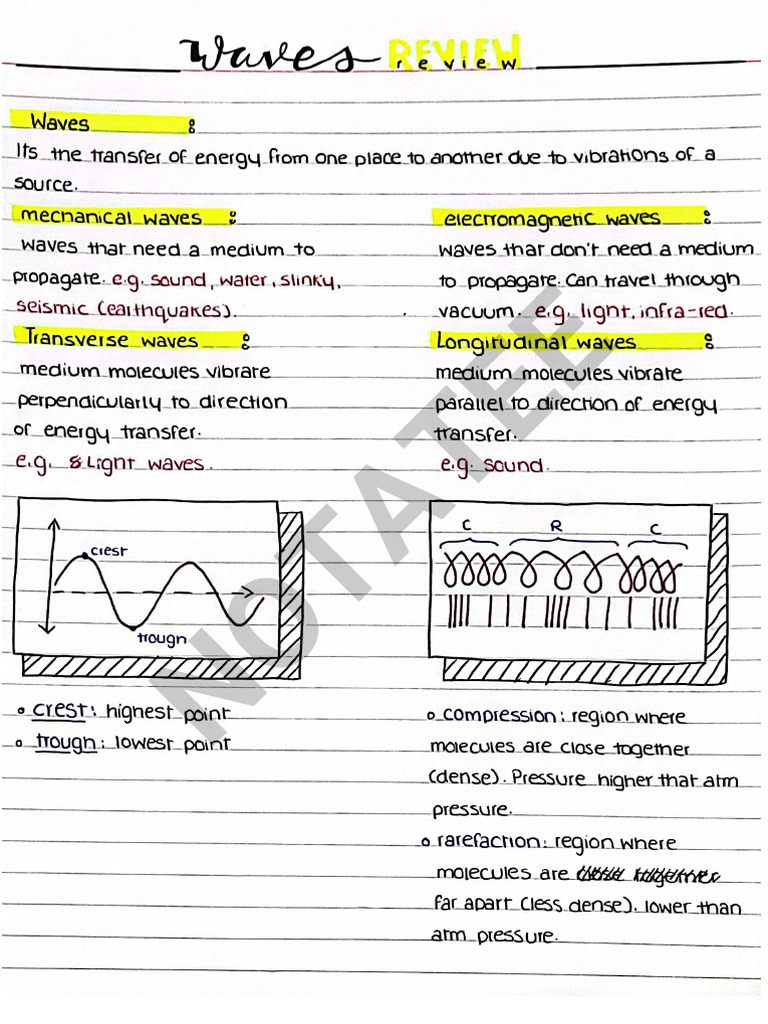 Waves REVIEW
review
Waves :
Its the transfer of energy from one place to another due to vibrations of a
source.
mechanical waves :
waves that need a medium to
propagate. e.g. sound, water, slinky,
seismic (earthquakes).
electromagnetic waves :
waves that don't need a medium
to propagate. Can travel through
vacuum. e.g. light, infra-red.
Transverse waves :
medium molecules vibrate
perpendicularly to direction
of energy transfer.
e.g. & Light waves.
Longitudinal waves :
medium molecules vibrate
parallel to direction of energy
transfer.
e.g. sound.
crest
trough
C R C
NOTATEE
• crest: highest point
• trough: lowest point
• compression: region where
molecules are close together
(dense). Pressure higher that atm
pressure.
• rarefaction: region where
molecules are
far apart (less dense). lower than
atm pressure.